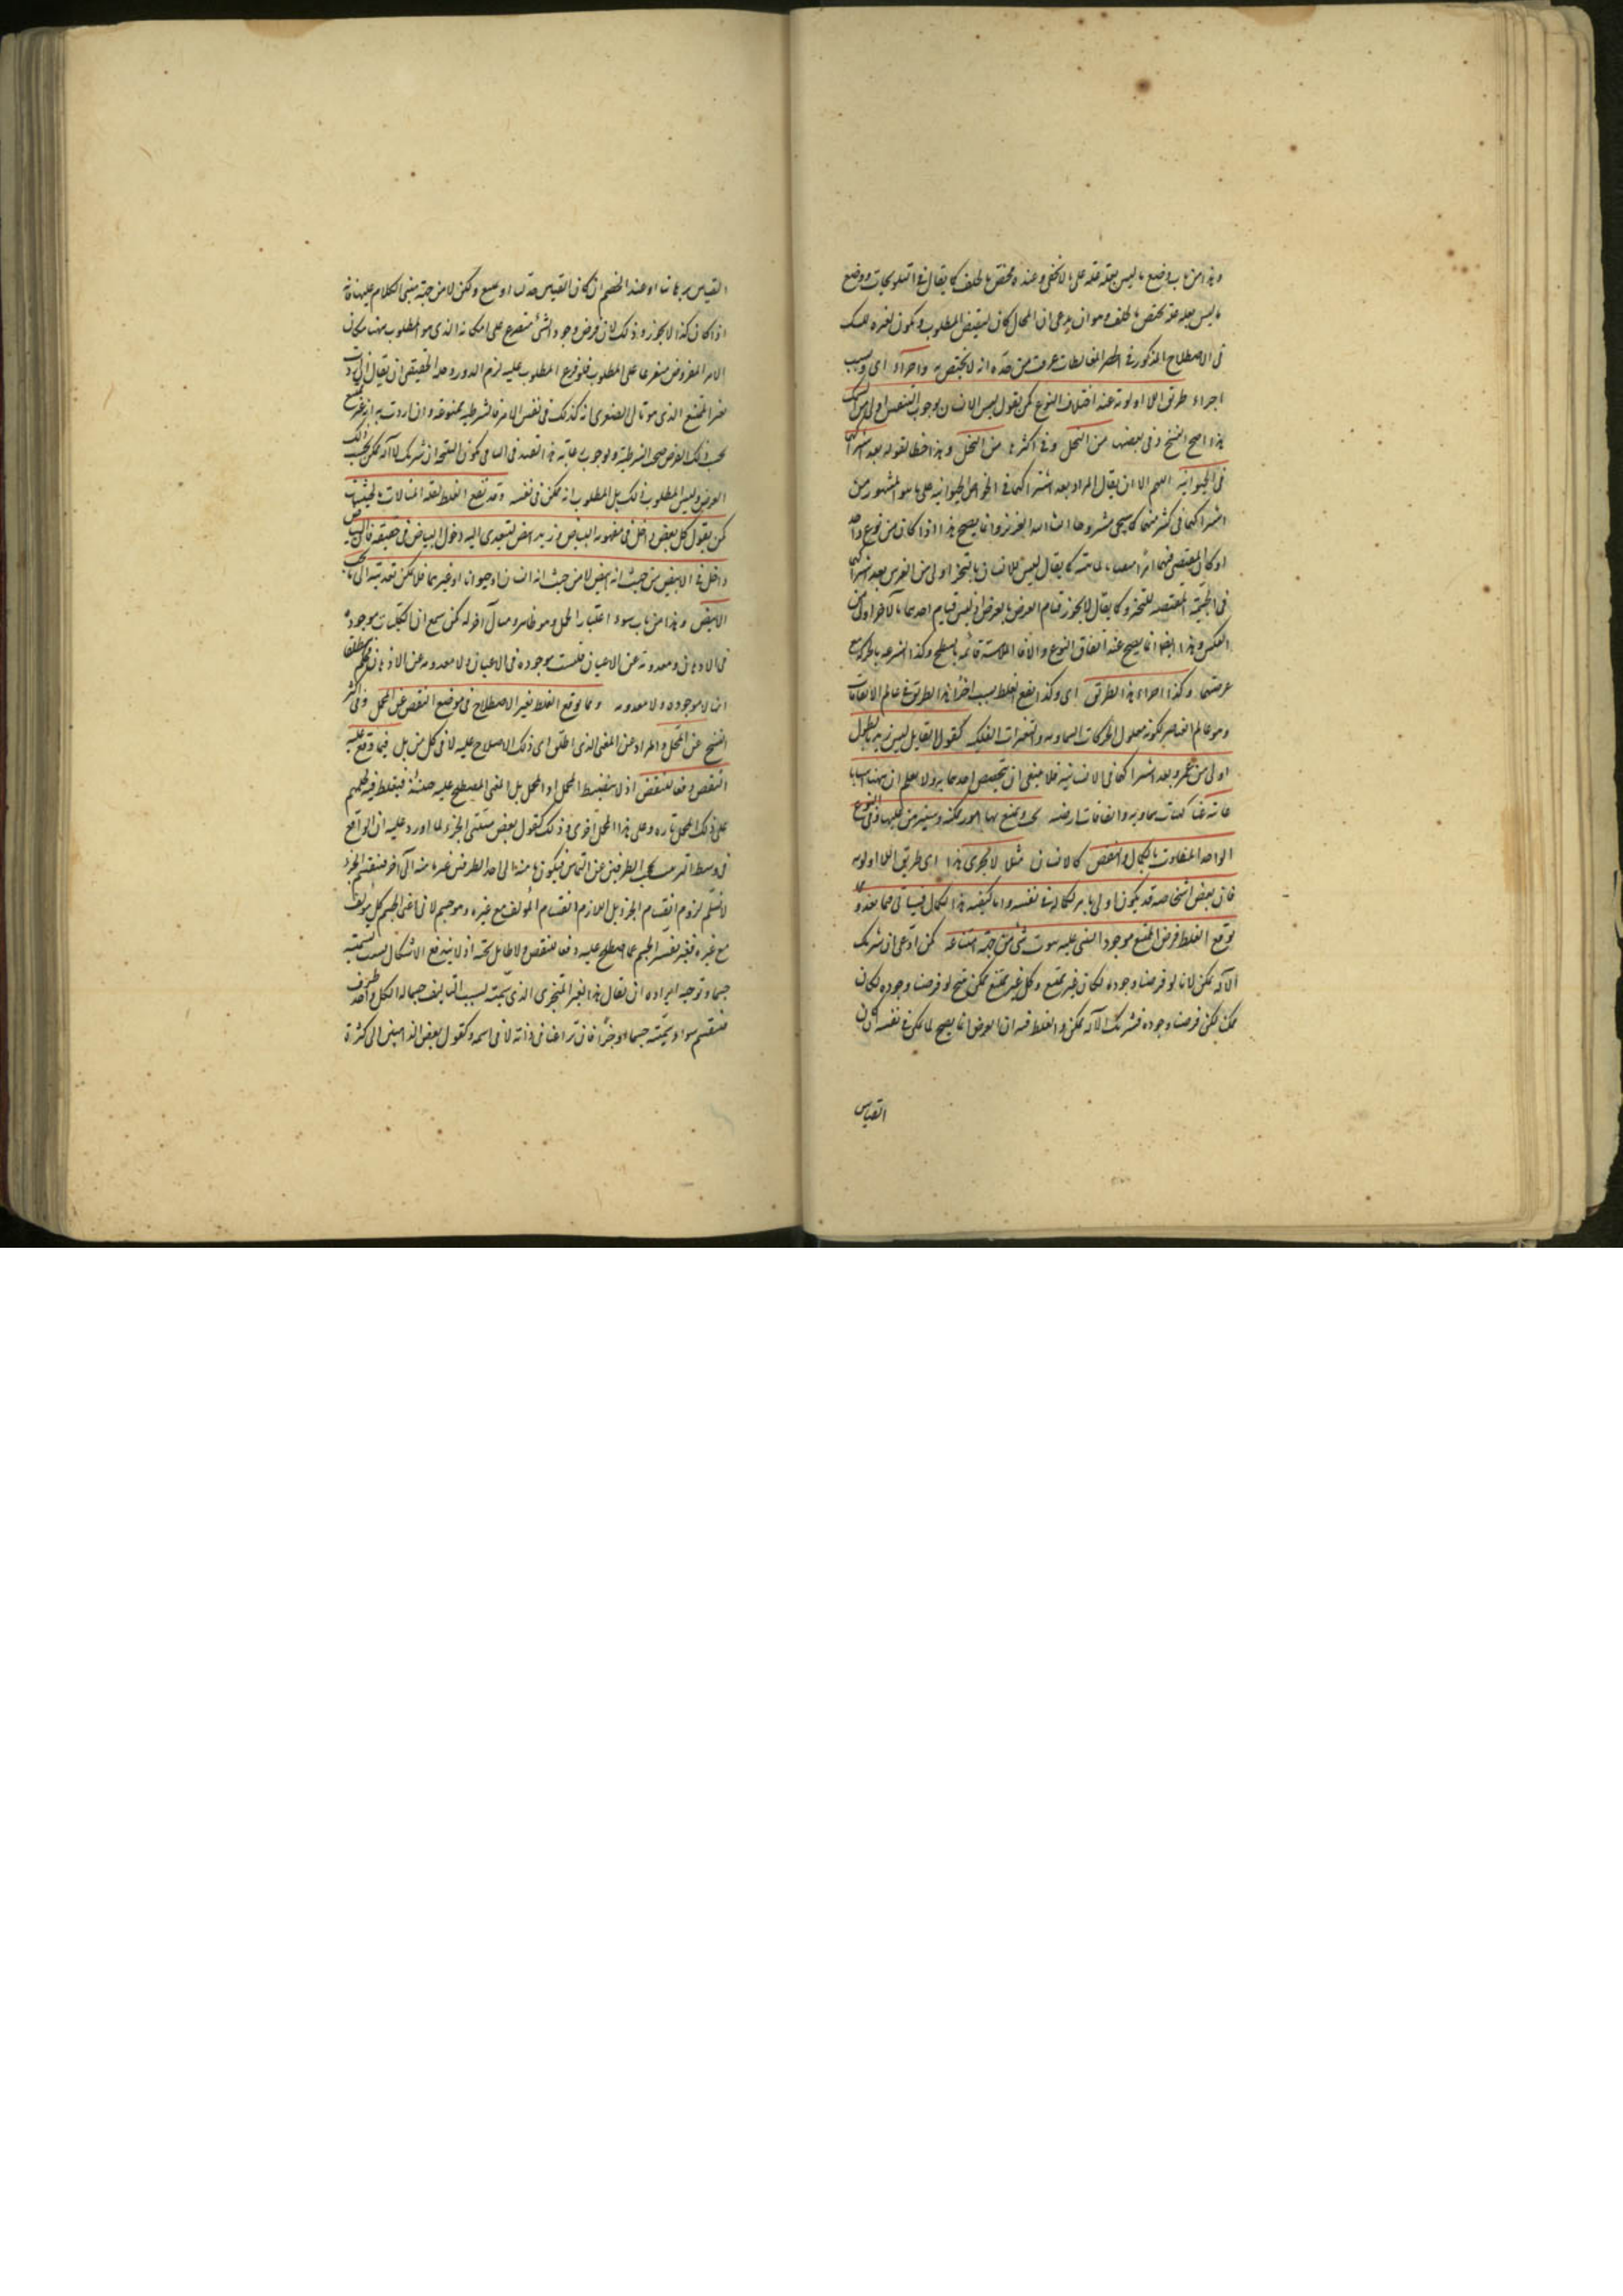 وهذا من باب وضع ما ليس بعلة علة على ما لا يخفى وعنده مختص بالخلف كما يقال في التلويحات ووضع
ما ليس بعلة علة يختص بالخلف وهو ان يدعى ان المحال كان لنقيض المطلوب ويكون لغيره
في الاصطلاح المذكور في اكثر المغالطات عرفت من حده انه لا يختص به واجراء اى وبسبب
اجراء طريق اللااولوية عند اختلاف النوع كمن يقول ليس الانسان بوجوب التنفس اولى من السمك
هذا اصح النسخ وفى بعضها من النحل وفى اكثرها من النخل وهذا خطا لقوله بعد اشتراكهما
فى الحيوانية اللهم الا ان يقال المراد بعد اشتراكهما فى الخواص الحيوانية على ما هو المشهور من
اشتراكهما فى كثير منها كما سيجى مشروحا ان شاء الله العزيز وانما يصح هذا اذا كان من نوع واحد
او كان المقتضى فيهما امرا كما يقال ليس الانسان بالتحيز اولى من الفرس بعد اشتراكهما
فى الجسمية المقتضية للتحيز وكما يقال لا يجوز قيام العرض بالعرض اذ ليس قيام احدهما بالآخر اولى من
العكس وهذا ايضا انما يصح عند اتفاق النوع والا فالملاسة قائمة بالسطح وكذا السرعة بالحركة مع
عرضيتهما وكذا اجراء هذا الطريق اى وكذا يقع الغلط بسبب اجراء هذا الطريق فى عالم الاتفاقات
وهو عالم العناصر لكونه معلول الحركات السماوية والتغيرات الفلكية كقول القايل ليس زيد بالطول
اولى من عمرو بعد اشتراكهما فى الانسانية فلا ينبغى ان يتخصص احدهما به ولا يعلم ان ههنا اسبابا
غائبة عنا كتأثيرات سماوية واتفاقات ارضية يجب ويمتنع بها امور ممكنة وسنبرهن عليها وفى النوع
الواحد المتفاوت بالكمال والنقص كالانسان مثلا لا يجرى هذا اى طريق اللااولوية
فان بعض اشخاصه قد يكون اولى بامر لكماله فى نفسه واما كيفية هذا الكمال فسيأتى فيما بعد ومما
يوقع الغلط فرض الممتنع موجودا ليبنى عليه ثبوت شئ من جهة امتناعه كمن ادعى ان شريك
الآله ممكن لانا لو فرضنا وجوده لكان غير ممتنع وكل غير ممتنع ممكن ينتج لو فرضنا وجوده لكان
ممكنا لكن فرضنا وجوده فشريك الآله ممكن والغلط فيه ان الفرض انما يصح لما يمكن فى نفسه كان
القياس
القياس برهانيا او عند الخصم ان كان القياس جدليا او ولكن لا من جهة مبنى الكلام عليها فانه
اذا كان كذا لا يجوز وذلك لان فرض وجود الشئ متفرع على امكانه الذى هو المطلوب ههنا وكان
الامر المفروض متفرعا على المطلوب فلو فرع المطلوب عليه لزم الدور وحله الحقيقى ان يقال ان اردت
بغير الممتنع الذى هو تالى الصغرى انه كذلك فى نفس الامر فالشرطية ممنوعة وان اردت به انه غير ممتنع
بحسب ذلك الفرض صحت الشرطية ولوجوب رعاية هذا القيد فى الباقى يكون النتيجة ان شريك الآله ممكن بحسب ذلك
الفرض وليس المطلوب ذلك بل المطلوب انه ممكن فى نفسه وقد يقع الغلط لقلة المبالاة بالحيثيات
كمن يقول كل ابيض داخل فى مفهومه البياض وزيد ابيض ليتعدى اليه دخول البياض فى حقيقته فان البياض
داخل فى الابيض من حيث انه ابيض لا من حيث انه انسان او حيوان او غيرهما فلا يمكن تعديته الى ما تحت
الابيض وهذا من باب سوء اعتبار الحمل وهو ظاهر ومثال آخر له كمن سمع ان الكليات موجودة
فى الاذهان ومعدومة عن الاعيان فليست موجودة فى الاعيان ولا معدومة عن الاذهان فيحكم مطلقا
انها لا موجودة ولا معدومة ومما يوقع الغلط تغيير الاصطلاح فى موضع النقض عن المحل وفى اكثر
النسخ عن المحل والمراد من المعنى الذى اطلق اى ذلك الاصطلاح عليه لا فى كل من بل فيما وقع عليه
النقض دفعا للنقض اذ لا ينضبط المحمل او المحل بل المعنى المصطلح عليه حينئذ فيغلط فيه لحملهم
على ذلك المحمل تارة وعلى هذا المحمل اخرى وذلك كقول بعض مثبتى الجزء لما اورد عليه ان الواقع
فى وسط الترتيب يحجب الطرفين عن التماس فيكون ما منه الى احد الطرفين غير ما منه الى آخر فينقسم الجزء
لا نسلم لزوم انقسام الجزء بل اللازم انقسام المؤلف مع غيره وهو جسم لانى اعنى بالجسم كل مؤلف
مع غيره فغير تفسير الجسم عما اصطلح عليه دفعا للنقض ولا طائل تحته اذ لا يندفع الاشكال بسبب تسميته
جسما وتوجيه ايراده ان يقال هذا الغير المتجزى الذى سميته بسبب التأليف جسما له الى كل واحد طرف
فينقسم سواء سميته جسما او جزءا فان نزاعنا فى ذاته لا فى اسمه وكقول بعض الذاهبين الى كثرة